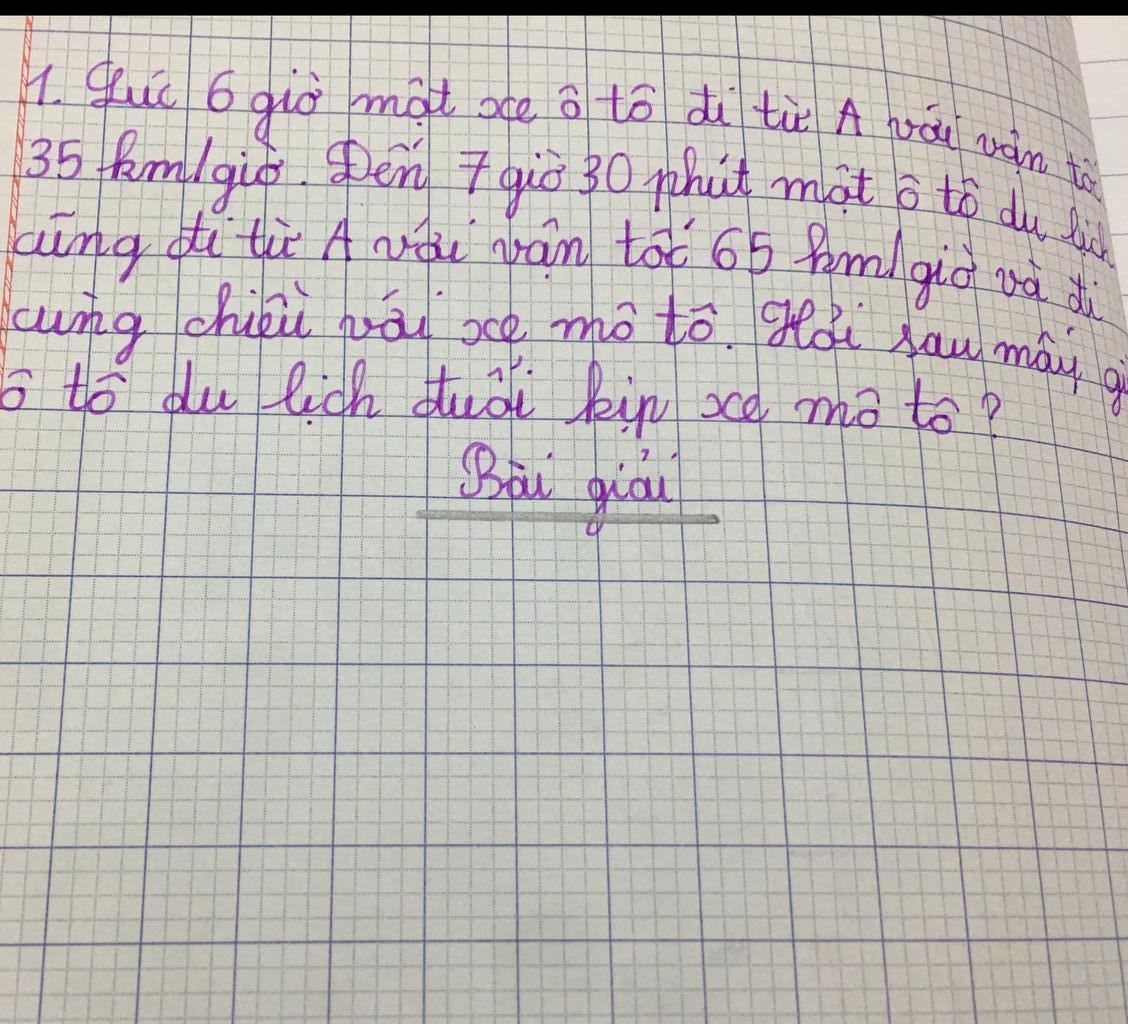 1. Lúc 6 giờ một xe ô tô đi từ A với vận tốc
35 km/giờ. Đến 7 giờ 30 phút một ô tô du lịch
cũng đi từ A với vận tốc 65 km/giờ và đi
cùng chiều với xe mô tô. Hỏi sau mấy gi
ô tô du lịch đuổi kịp xe mô tô?
Bài giải